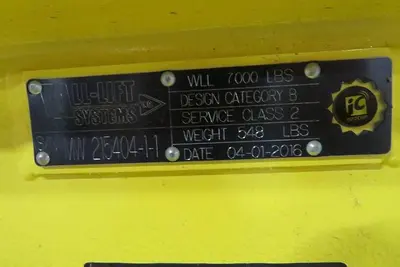 ALL-LIFT
SYSTEMS
S/N 215404-1-1
WLL 7000 LBS
DESIGN CATEGORY B
SERVICE CLASS 2
WEIGHT 548 LBS
DATE 04-01-2016